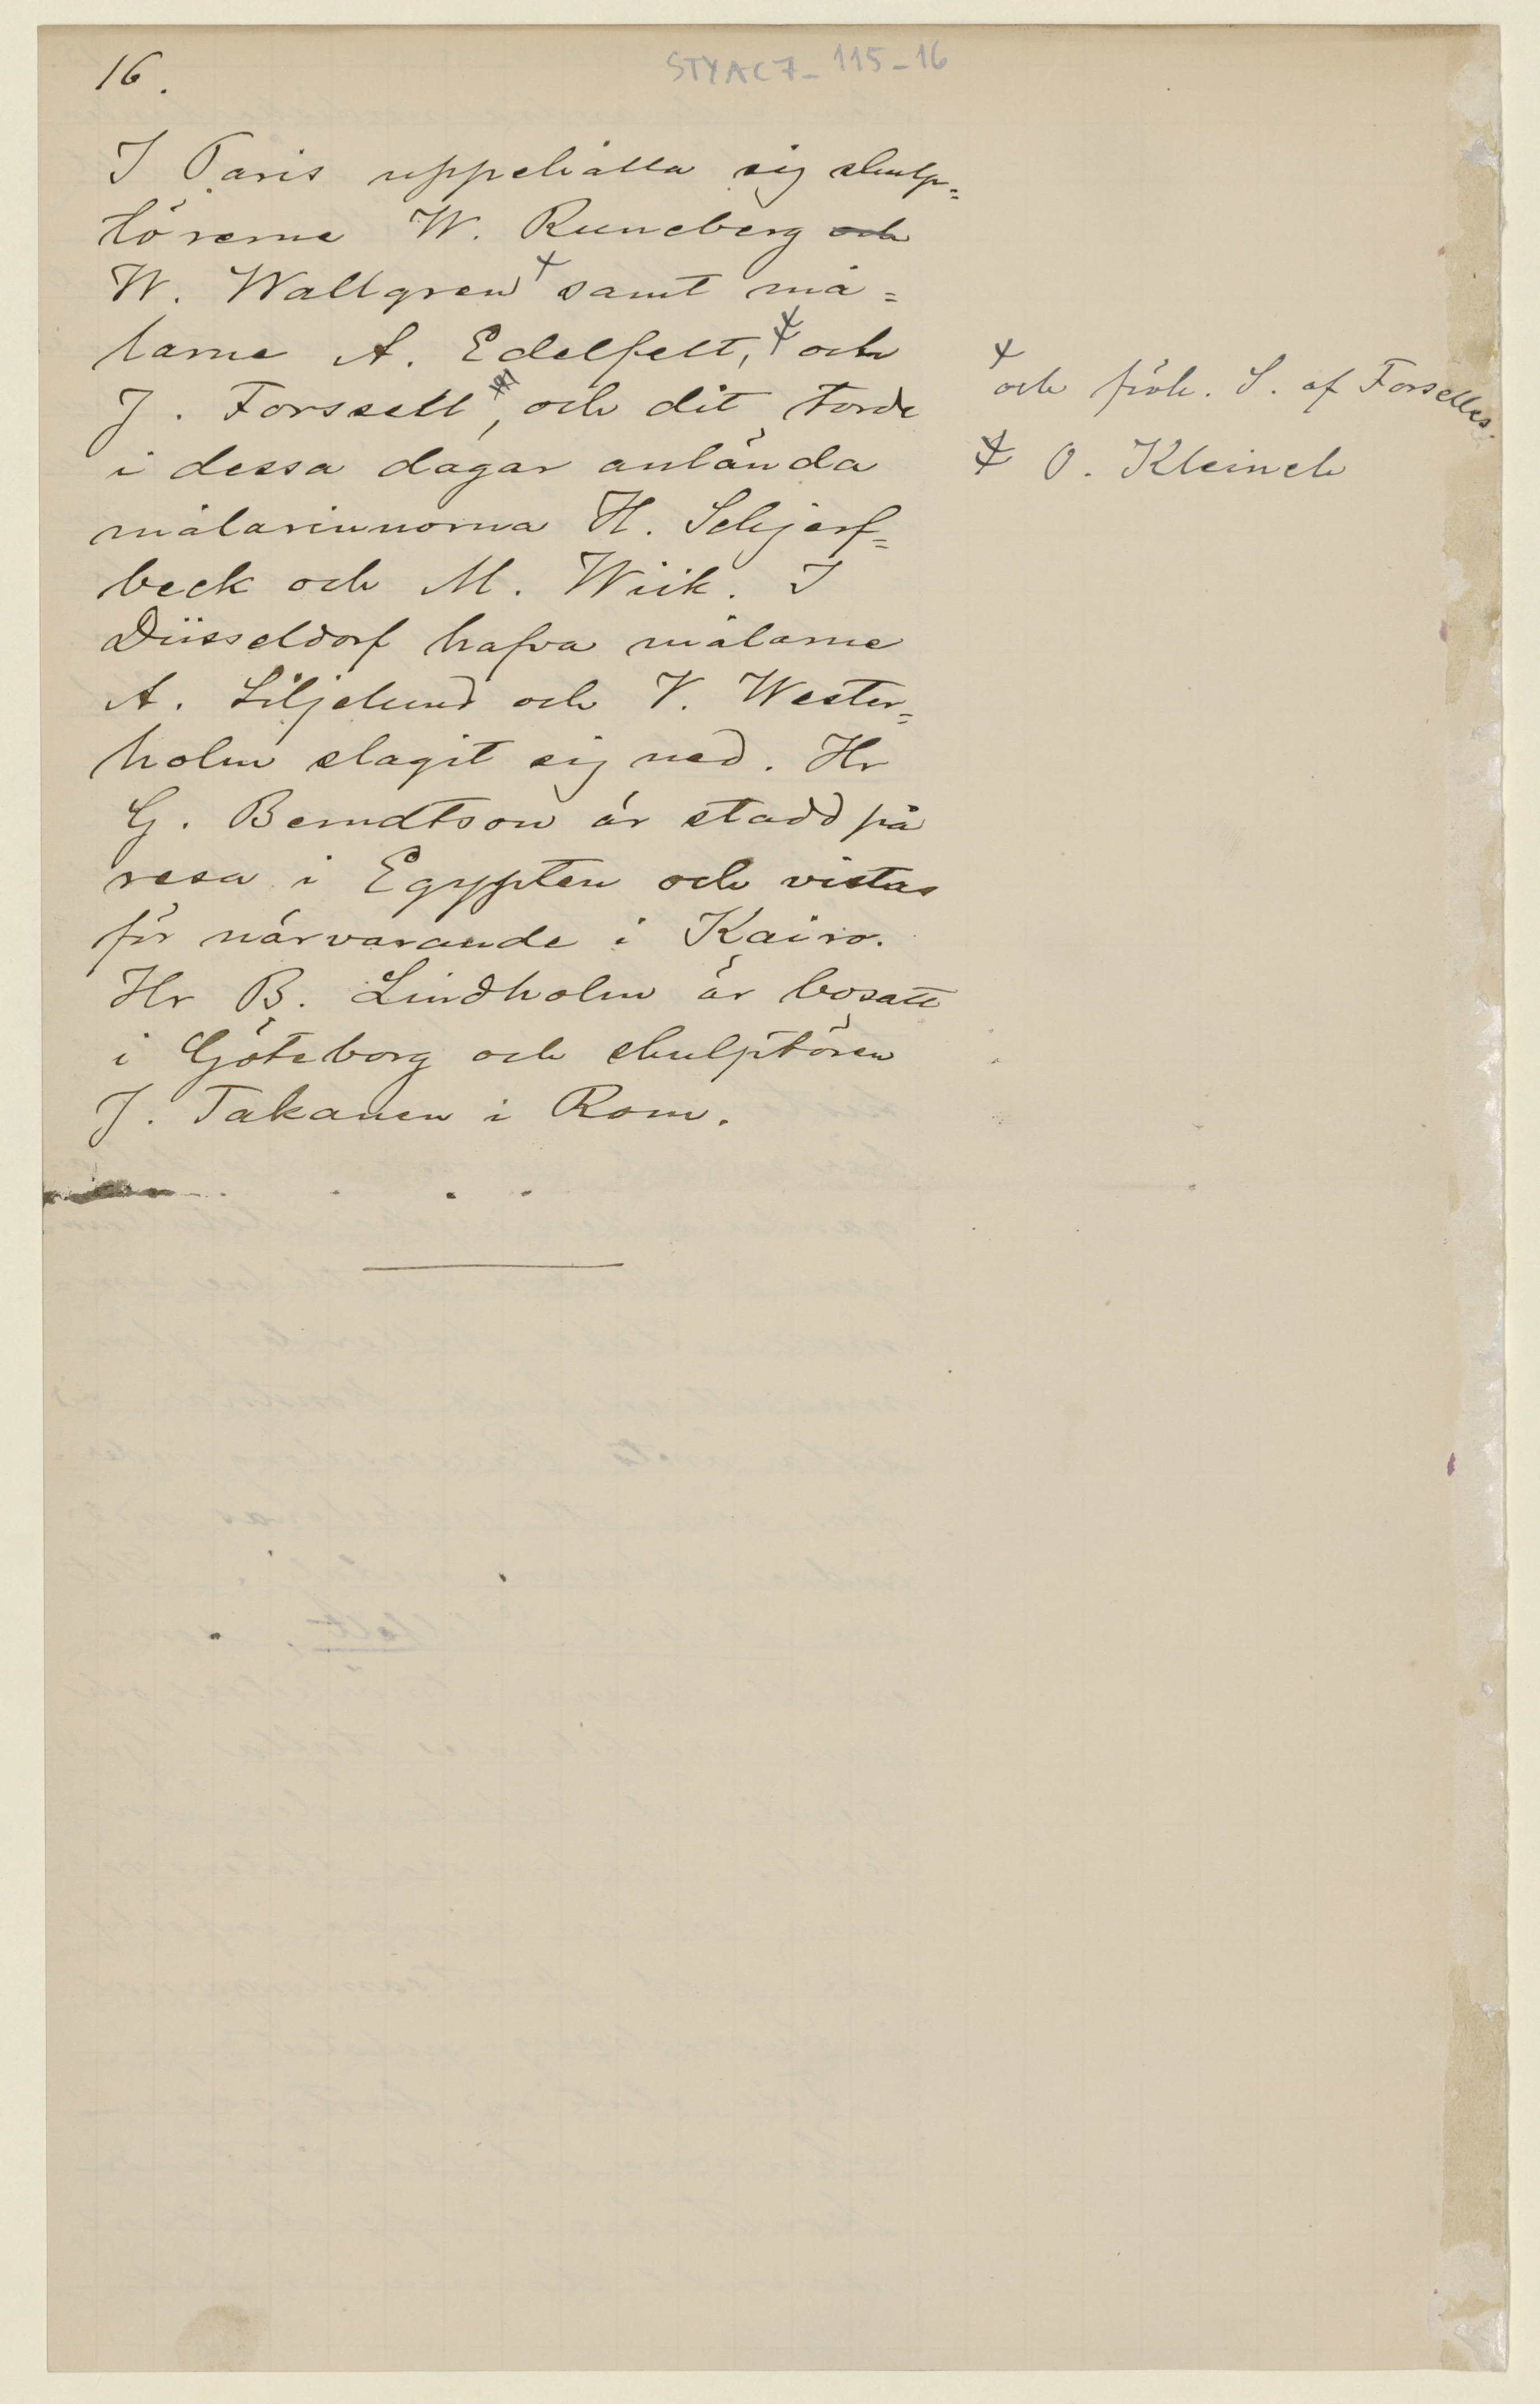 16.
STYAC7-115-16
I Paris uppehålla sig skulp=
törerne W. Runeberg och
W. Wallgren + samt må=
larne A. Edelfelt, ‡ och
J. Forssell, och dit torde
i dessa dagar anlända
målarinnorna H. Schjerf=
beck och M. Wiik. I
Düsseldorf hafva målarne
A. Liljelund och V. Wester=
holm slagit sig ned. Hr
G. Berndtson är stadd på
resa i Egypten och vistas
för närvarande i Kairo.
Hr B. Lindholm är bosatt
i Göteborg och skulptören
J. Takanen i Rom.
+
och frök. S. af Forselles.
‡ O. Kleineh